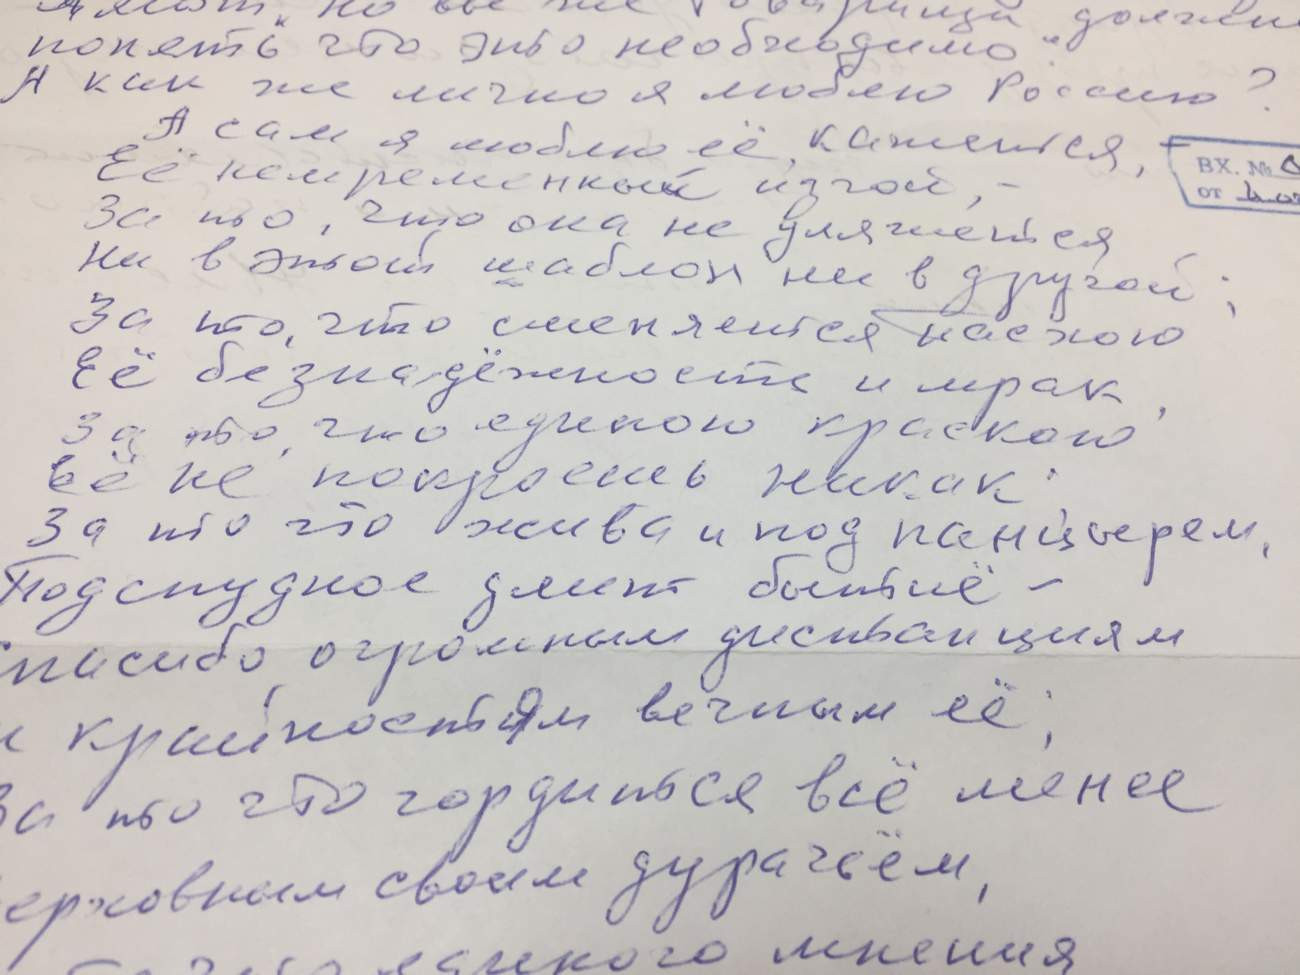 но вы же товарищи должны
понять что это необходимо".
А как же лично я люблю Россию?
А сам я люблю её, кажется, -
Её непременный изгой, -
За то, что она не уляжется
Ни в этот шаблон ни в другой;
За то, что сменяется наехою
Её безнадёжность и мрак,
За то, что единою краскою
Её не покроешь никак;
За то что жива и под панцырем,
Подспудное длит бытиё -
Спасибо огромным дистанциям
и крайностям вечным её;
За то что гордиться всё менее
верховным своим дурачьём,
единого мнения
ВХ. №
от